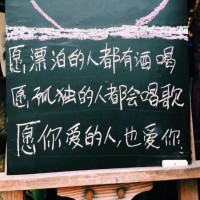 愿漂泊的人都有酒喝
愿孤独的人都会唱歌
愿你爱的人,也爱你.